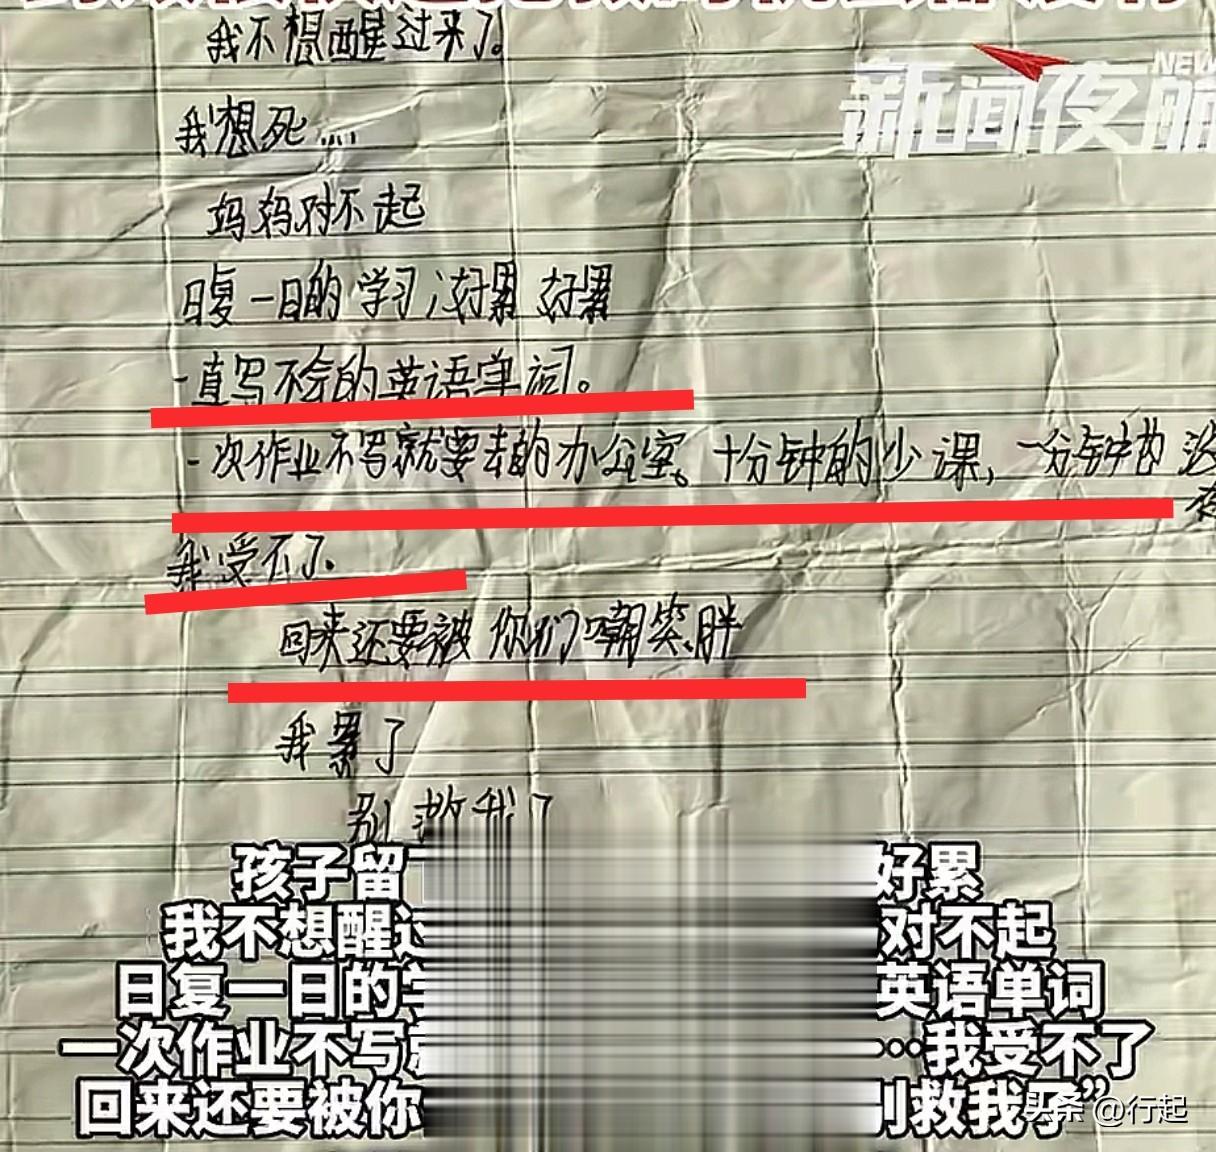 我不想醒过来了。
NEW
新闻夜航
我想死....
妈妈对不起
日复一日的学习，好累 好累
一直写不会的英语单词。
一次作业不写就要去的办公室。十分钟的少课，一分钟的没
存
我受不了.
回来还要被你们嘲笑胖
我累了
别救我了
孩子留 好累
我不想醒过 对不起
日复一日的学 英语单词
一次作业不写就 …我受不了
回来还要被你 别救我了”
头条 @行起